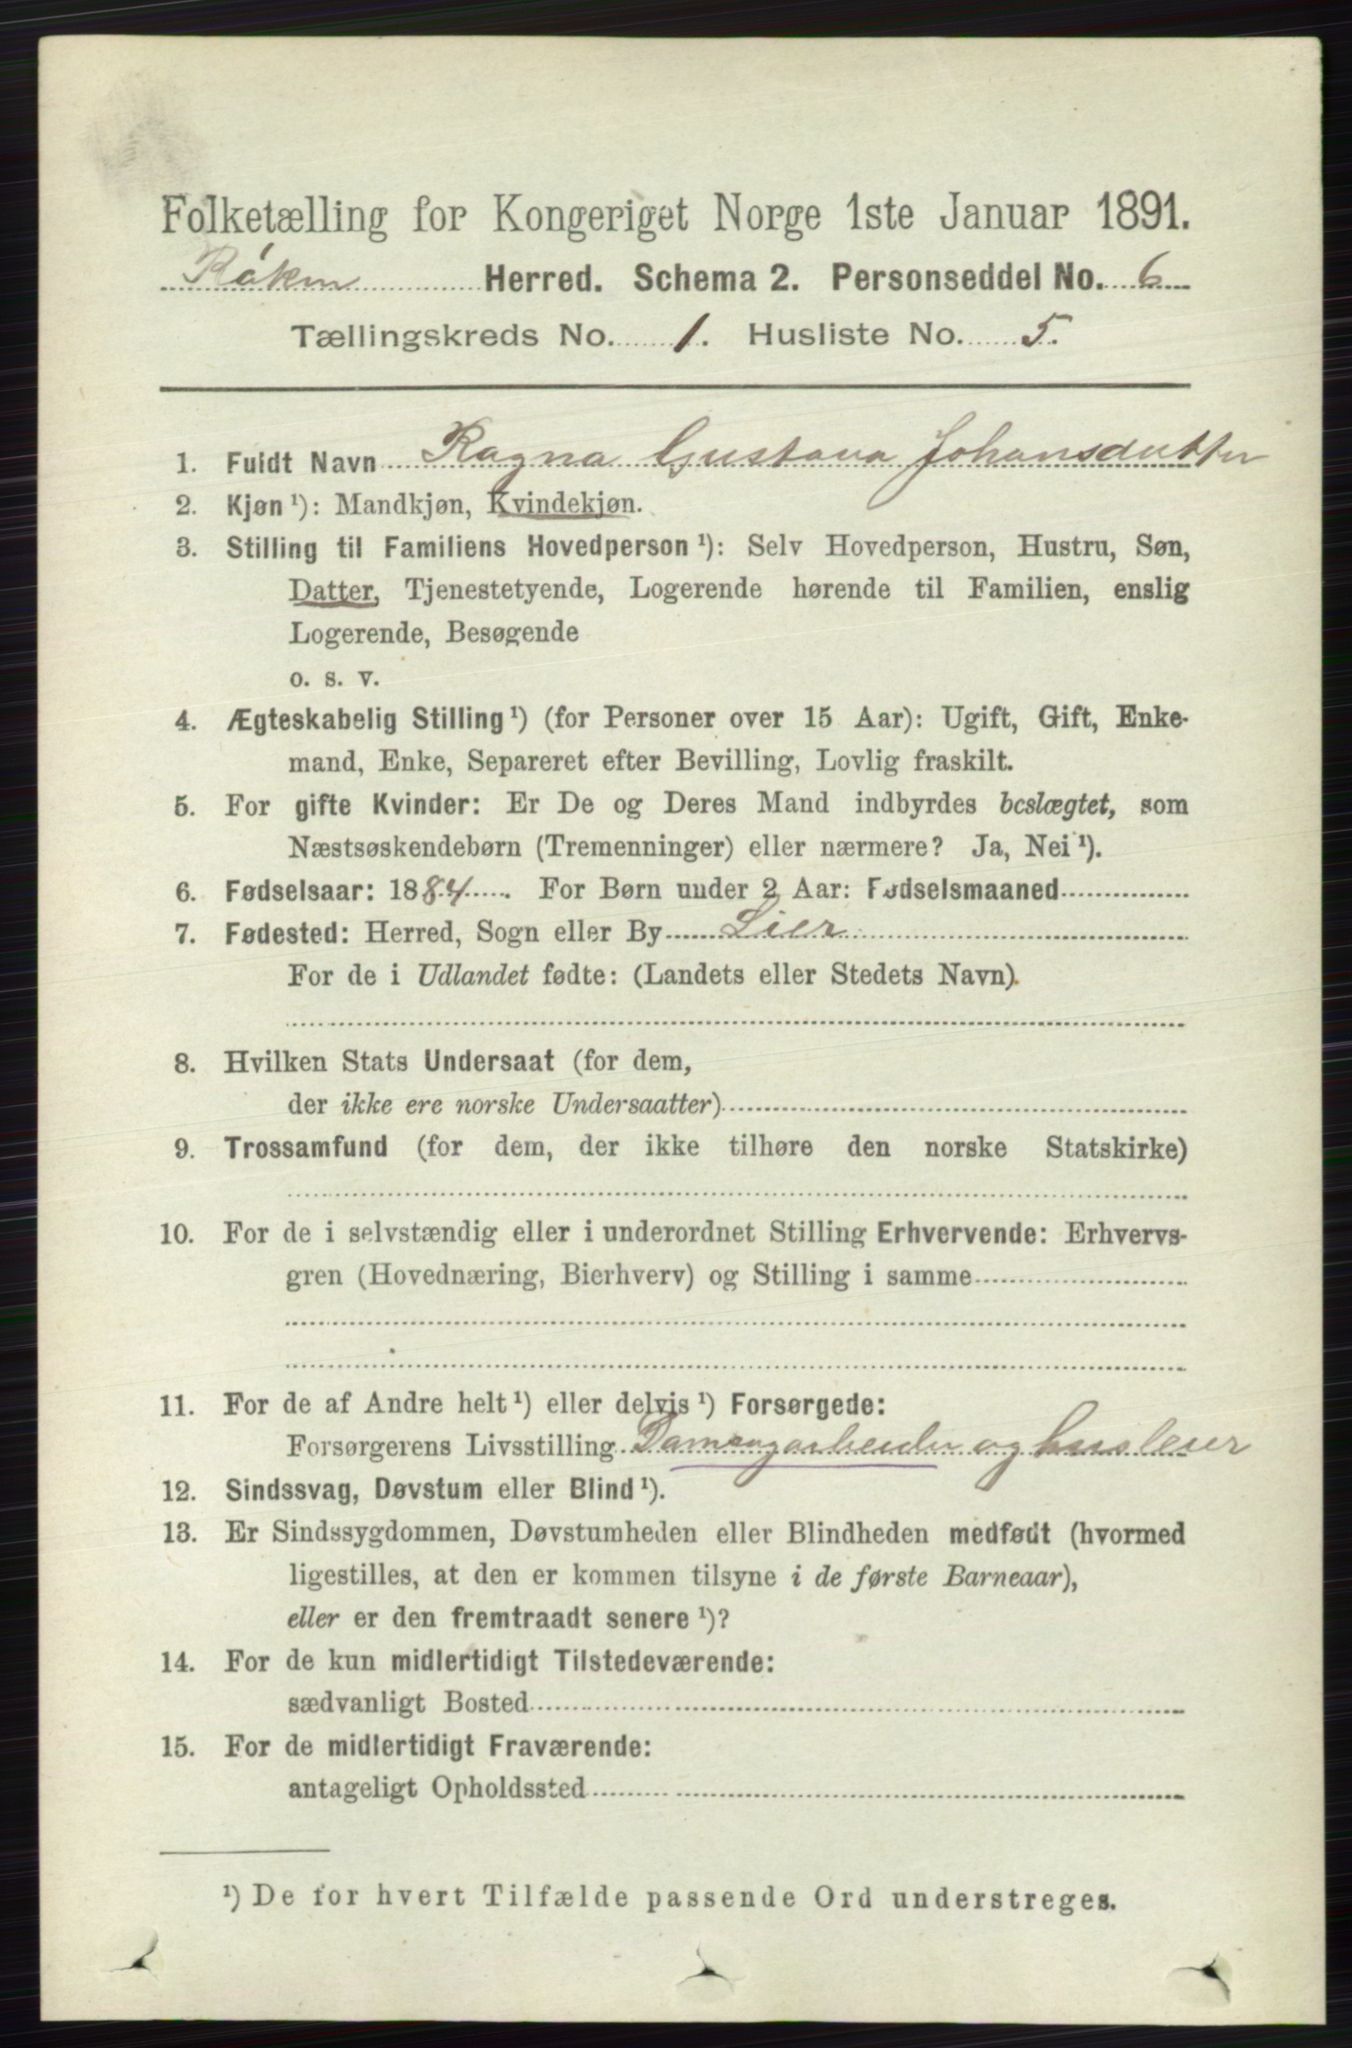 Folketælling for Kongeriget Norge 1ste Januar 1891.
Røken Herred. Schema 2. Personseddel No. 6
Tællingskreds No. 1. Husliste No. 5.
1. Fuldt Navn Ragna Gustava Johansdatter
2. Kjøn ¹): Mandkjøn, Kvindekjøn.
3. Stilling til Familiens Hovedperson ¹): Selv Hovedperson, Hustru, Søn,
Datter, Tjenestetyende, Logerende hørende til Familien, enslig
Logerende, Besøgende
o. s. v.
4. Ægteskabelig Stilling ¹) (for Personer over 15 Aar): Ugift, Gift, Enke-
mand, Enke, Separeret efter Bevilling, Lovlig fraskilt.
5. For gifte Kvinder: Er De og Deres Mand indbyrdes beslægtet, som
Næstsøskendebørn (Tremenninger) eller nærmere? Ja, Nei ¹).
6. Fødselsaar: 1884. For Børn under 2 Aar: Fødselsmaaned
7. Fødested: Herred, Sogn eller By Lier
For de i Udlandet fødte: (Landets eller Stedets Navn).
8. Hvilken Stats Undersaat (for dem,
der ikke ere norske Undersaatter)
9. Trossamfund (for dem, der ikke tilhøre den norske Statskirke)
10. For de i selvstændig eller i underordnet Stilling Erhvervende: Erhvervs-
gren (Hovednæring, Bierhverv) og Stilling i samme
11. For de af Andre helt ¹) eller delvis ¹) Forsørgede:
Forsørgerens Livsstilling Damsagarbeider og husleier
12. Sindssvag, Døvstum eller Blind ¹).
13. Er Sindssygdommen, Døvstumheden eller Blindheden medfødt (hvormed
ligestilles, at den er kommen tilsyne i de første Barneaar),
eller er den fremtraadt senere ¹)?
14. For de kun midlertidigt Tilstedeværende:
sædvanligt Bosted
15. For de midlertidigt Fraværende:
antageligt Opholdssted
¹) De for hvert Tilfælde passende Ord understreges.